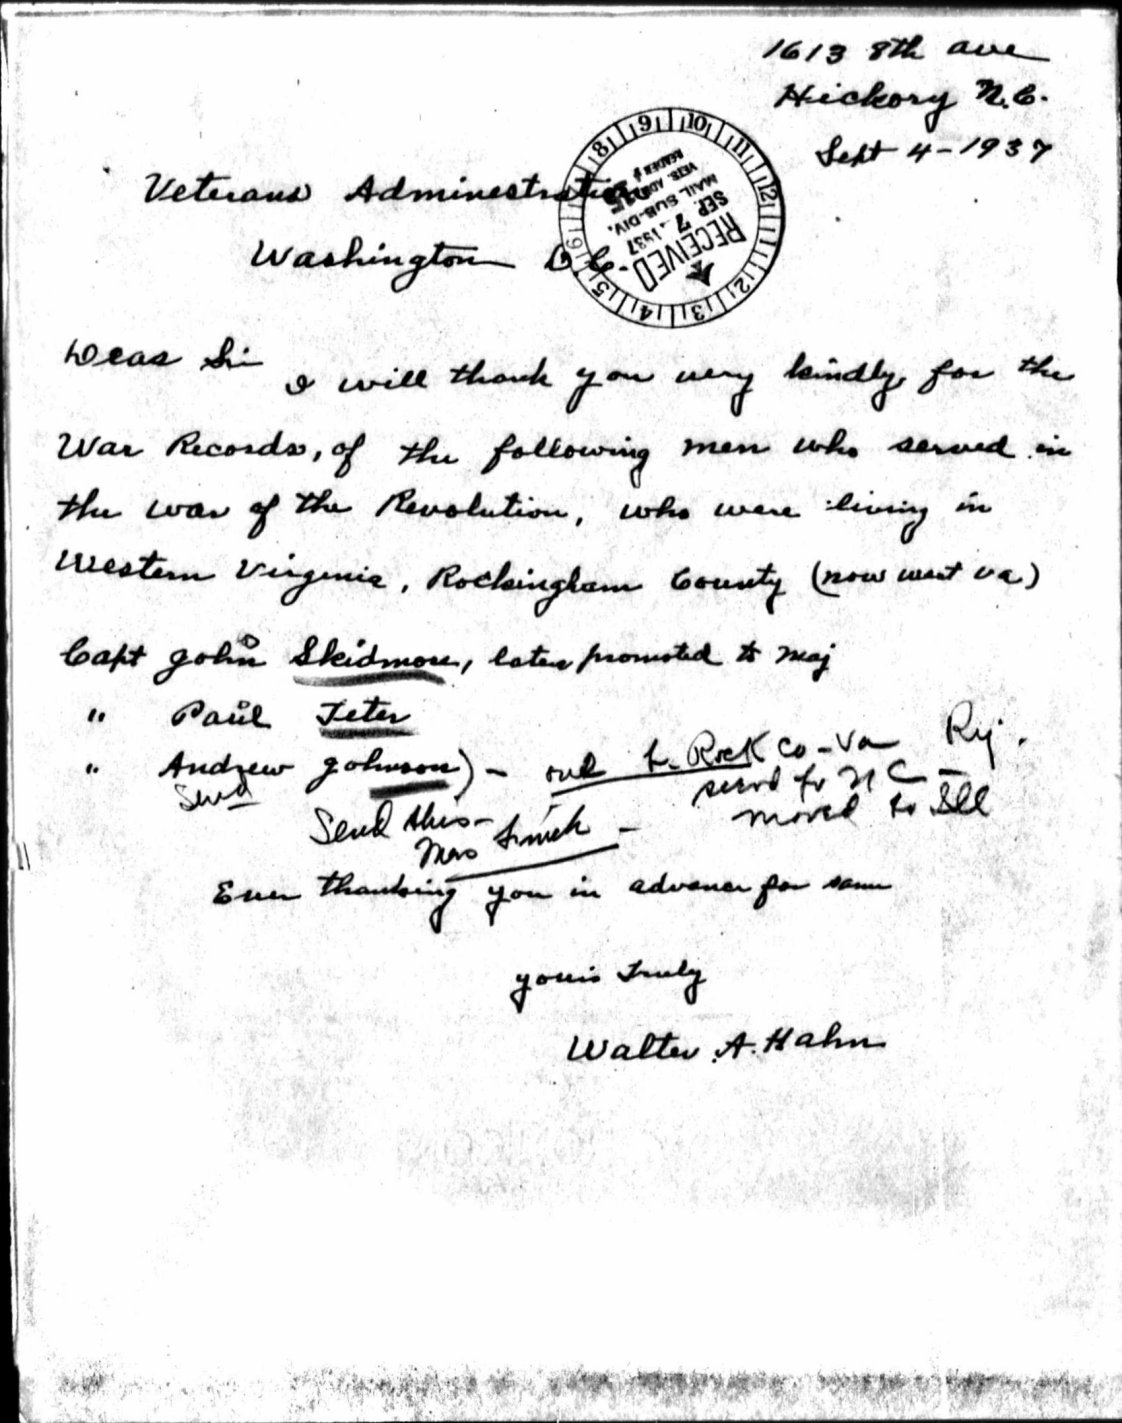 1613 8th ave
Hickory N.C.
Sept 4-1937
Veterans Administration
Washington D.C.
RECEIVED
SEP 7 1937
MAIL SUB-DIV.
VETS. ADM.
9 10 11 12 1 2 3 4 5 6 8
Dear Sir
I will thank you very kindly, for the
War Records, of the following men who served in
the war of the Revolution, who were living in
Western Virginia, Rockingham County (now west va)
Capt John Skidmore, later promoted to Maj
" Paul Teter
" Andrew Johnson) - Rock Co - Va Rej.
Send
served fr N C -
moved to Ill
Send this -
Mrs
Ever thanking you in advance for same
yours Truly
Walter A. Hahn